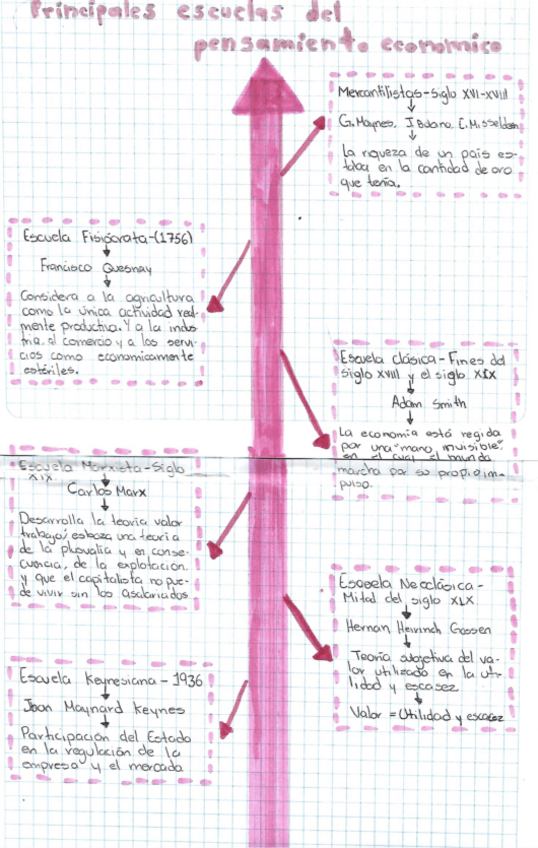 Principales escuelas del
pensamiento económico
Mercantilistas-Siglo XVI-XVIII
G. Maynes, J Bubano, E. Misselden
La riqueza de un país es-
taba en la cantidad de oro
que tenía.
Escuela Fisiócrata-(1756)
Francisco Quesnay
Considera a la agricultura
como la única actividad real-
mente productiva. Y a la indus
tria, al comercio y a los servi-
cios como economicamente
estériles.
Escuela clásica-Fines del
siglo XVIII y el siglo XIX
Adam Smith
La economía está regida
por una "mano invisible"
en el cual el mundo
marcha por su propio im-
pulso.
Escuela Marxista-Siglo
XIX
Carlos Marx
Desarrolla la teoria valor
trabajo; esboza una teoria
de la plusvalia y en conse-
cuencia, de la explotacion.
y que el capitalista no pue-
de vivir sin los asalariados
Escuela Neoclásica-
Mitad del siglo XIX
Hernan Heirinch Gossen
Teoria subjetiva del va-
lor utilizado en la uti-
lidad y escasez
Valor = Utilidad y escasez
Escuela Keynesiana - 1936
Jhon Maynard Keynes
Participación del Estado
en la regulación de la
empresa y el mercado